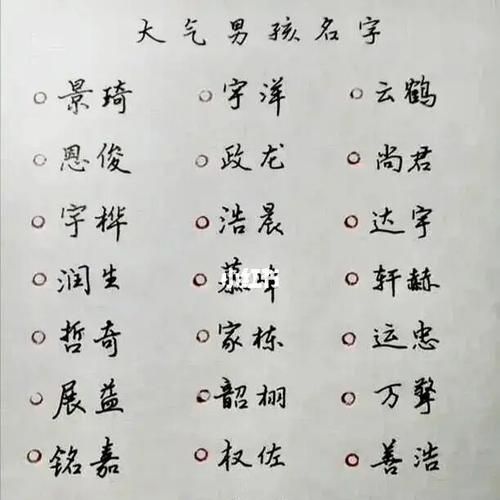 大气男孩名字
景琦 宇洋 云鹤
恩俊 政龙 尚君
宇桦 浩晨 达宇
润生 慕 轩赫
哲奇 家栋 运忠
展益 韶栩 万擎
铭嘉 权佐 善浩
小红书